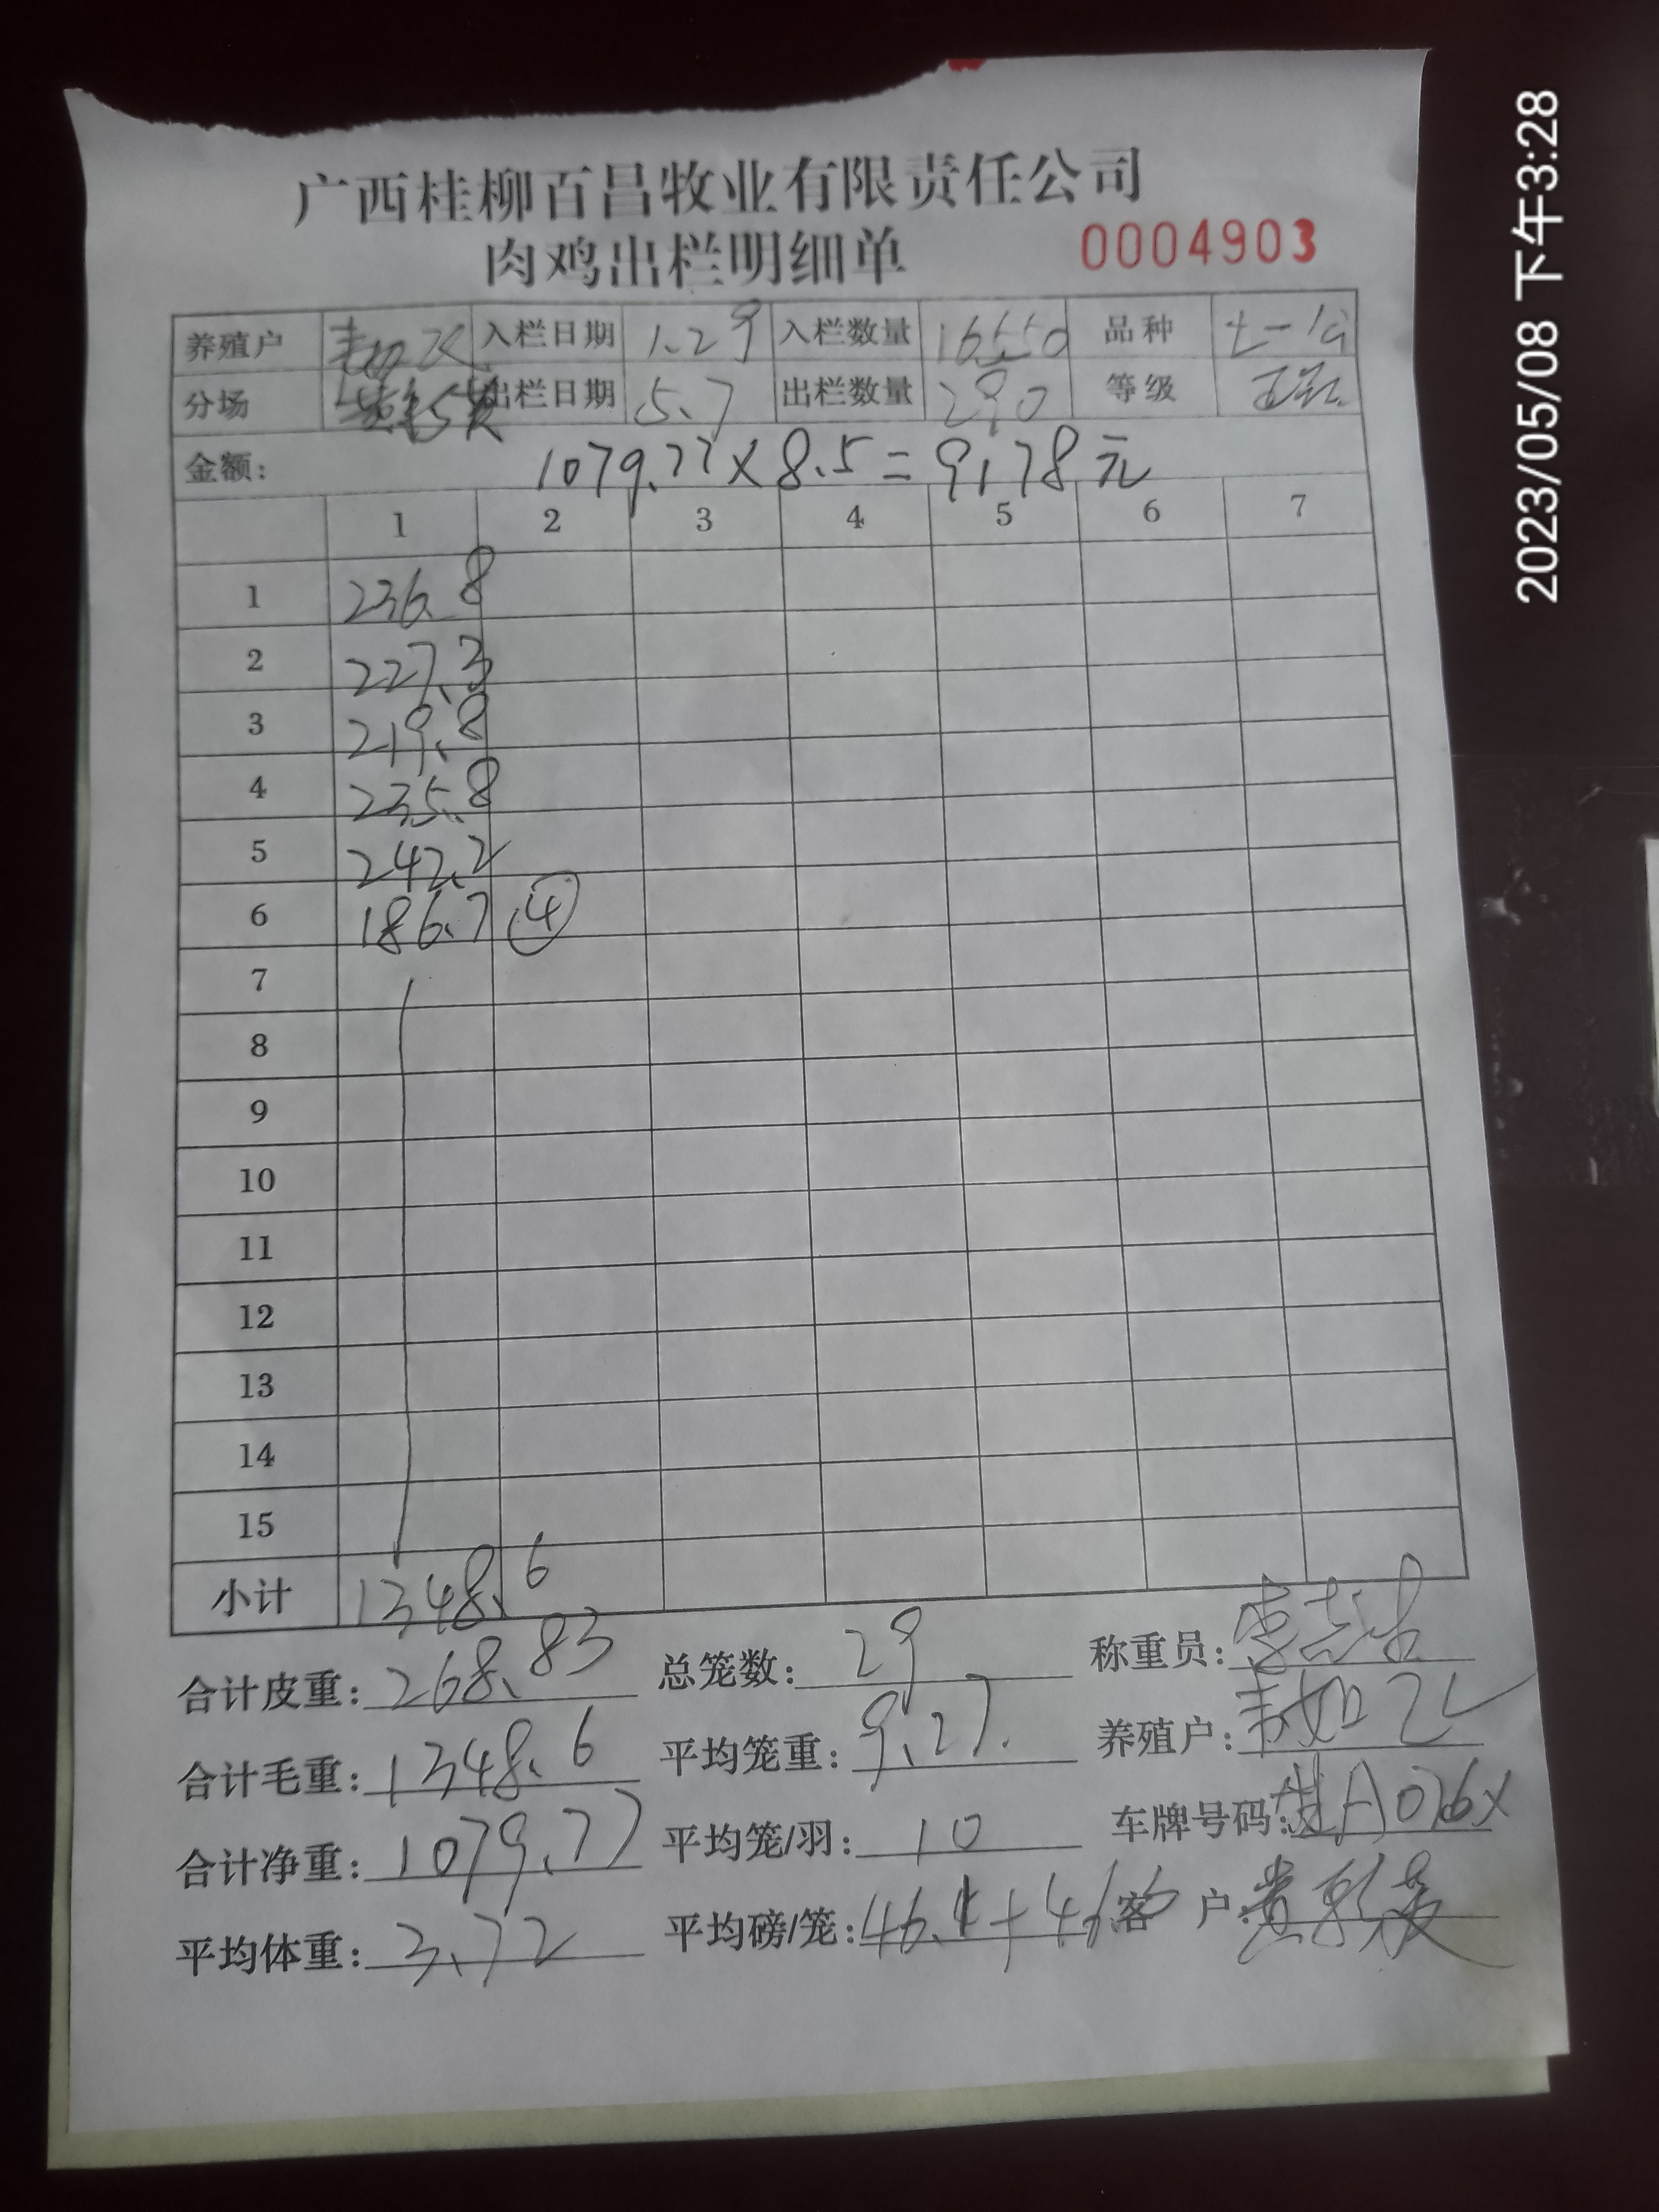 广西桂柳百昌牧业有限责任公司
肉鸡出栏明细单 0004903
养殖户 韦如 入栏日期 1.29 入栏数量 16550 品种 土一公
分场 出栏日期 5.7 出栏数量 290 等级
金额: 1079.77×8.5=9178元
1 2 3 4 5 6 7
1 236.8
2 227.3
3 219.8
4 235.8
5 242.2
6 186.7 ④
7
8
9
10
11
12
13
14
15
小计 1348.6
合计皮重: 268.83 总笼数: 29 称重员: 李志
合计毛重: 1348.6 平均笼重: 9.27. 养殖户: 韦如
合计净重: 1079.77 平均笼/羽: 10 车牌号码:
平均体重: 3.72 平均磅/笼: 客 户: 黄彩
2023/05/08 下午3:28